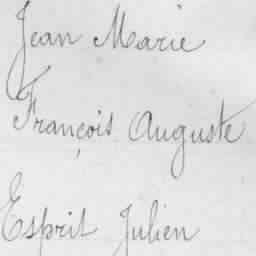 Jean Marie
François Auguste
Esprit Julien